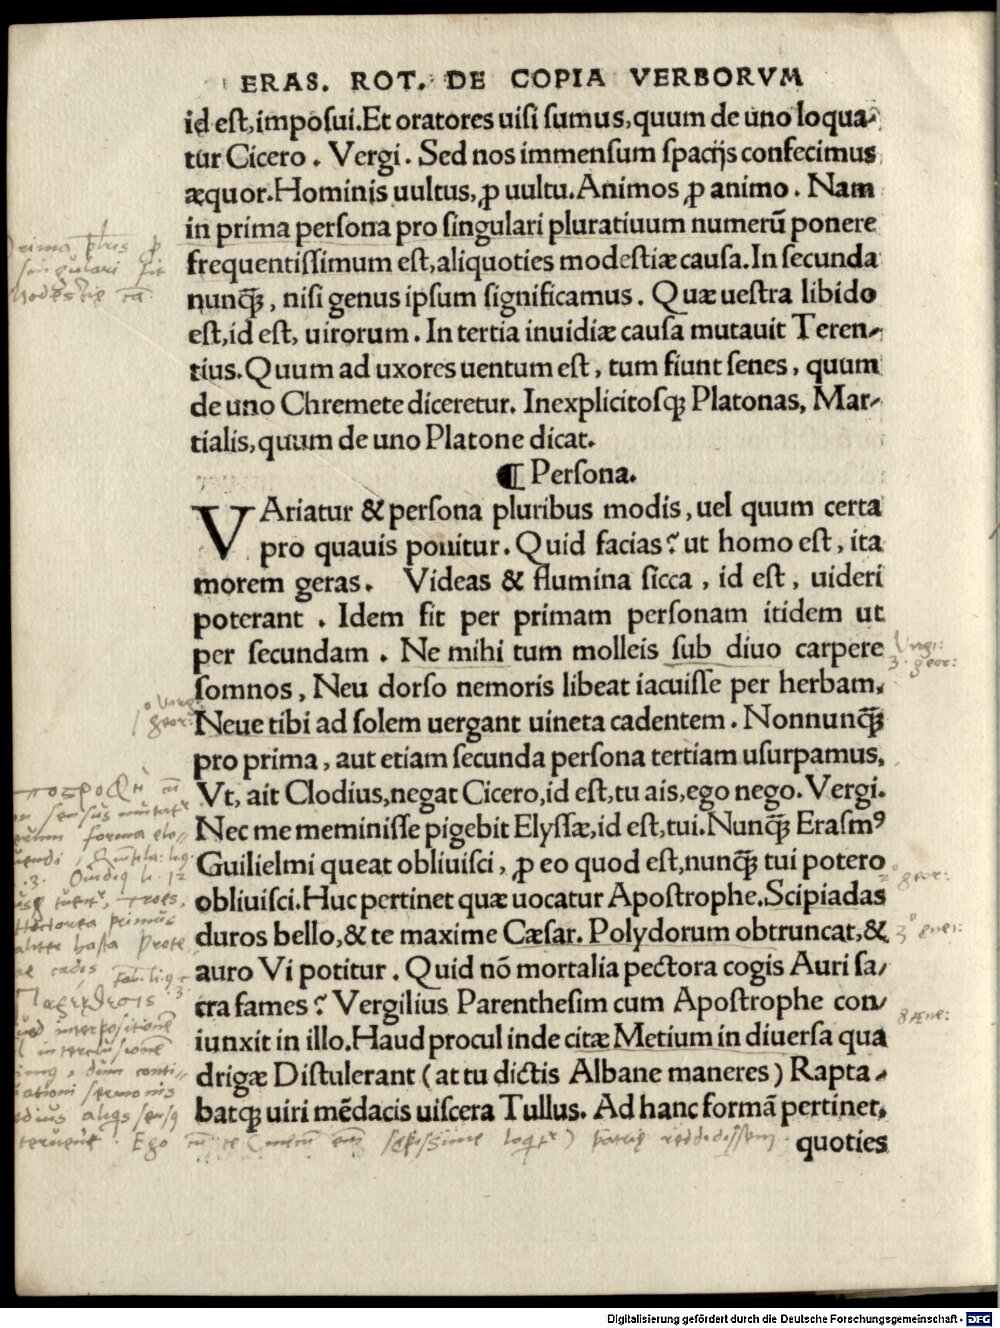 ERAS. ROT. DE COPIA VERBORVM
id eſt,impoſui.Et oratores uiſi ſumus,quum de uno loqua-
tur Cicero . Vergi . Sed nos immenſum ſpacijs confecimus
æquor.Hominis uultus, ꝓ uultu.Animos ꝓ animo . Nam
in prima perſona pro ſingulari pluratiuum numerū ponere
frequentiſſimum eſt,aliquoties modeſtiæ cauſa.In ſecunda
nunꝗ̃, niſi genus ipſum ſignificamus . Quæ ueſtra libido
eſt,id eſt, uirorum . In tertia inuidiæ cauſa mutauit Teren-
tius.Quum ad uxores uentum eſt , tum fiunt ſenes , quum
de uno Chremete diceretur. Inexplicitoſꝙ Platonas, Mar-
tialis,quum de uno Platone dicat.
¶ Perſona.
VAriatur & perſona pluribus modis , uel quum certa
pro quauis ponitur . Quid facias? ut homo eſt , ita
morem geras . Videas & flumina ſicca , id eſt , uideri
poterant . Idem fit per primam perſonam itidem ut
per ſecundam . Ne mihi tum molleis ſub diuo carpere
Vergi:
3. geor:
ſomnos , Neu dorſo nemoris libeat iacuiſſe per herbam.
Neue tibi ad ſolem uergant uineta cadentem . Nonnunꝗ̃
pro prima , aut etiam ſecunda perſona tertiam uſurpamus.
Vt, ait Clodius,negat Cicero,id eſt,tu ais,ego nego. Vergi.
Nec me meminiſſe pigebit Elyſſæ,id eſt,tui.Nunꝗ̃ Eraſmꝰ
Guilielmi queat obliuiſci , ꝓ eo quod eſt,nunꝗ̃ tui potero
obliuiſci.Huc pertinet quæ uocatur Apoſtrophe.Scipiadas
duros bello,& te maxime Cæſar. Polydorum obtruncat,&
auro Vi potitur . Quid nō mortalia pectora cogis Auri ſa-
cra fames? Vergilius Parentheſim cum Apoſtrophe con-
iunxit in illo.Haud procul inde citæ Metium in diuerſa qua
drigæ Diſtulerant ( at tu dictis Albane maneres ) Rapta-
batꝙ uiri mēdacis uiſcera Tullus. Ad hanc formā pertinet,
quoties
Digitalisierung gefördert durch die Deutsche Forschungsgemeinschaft - DFG